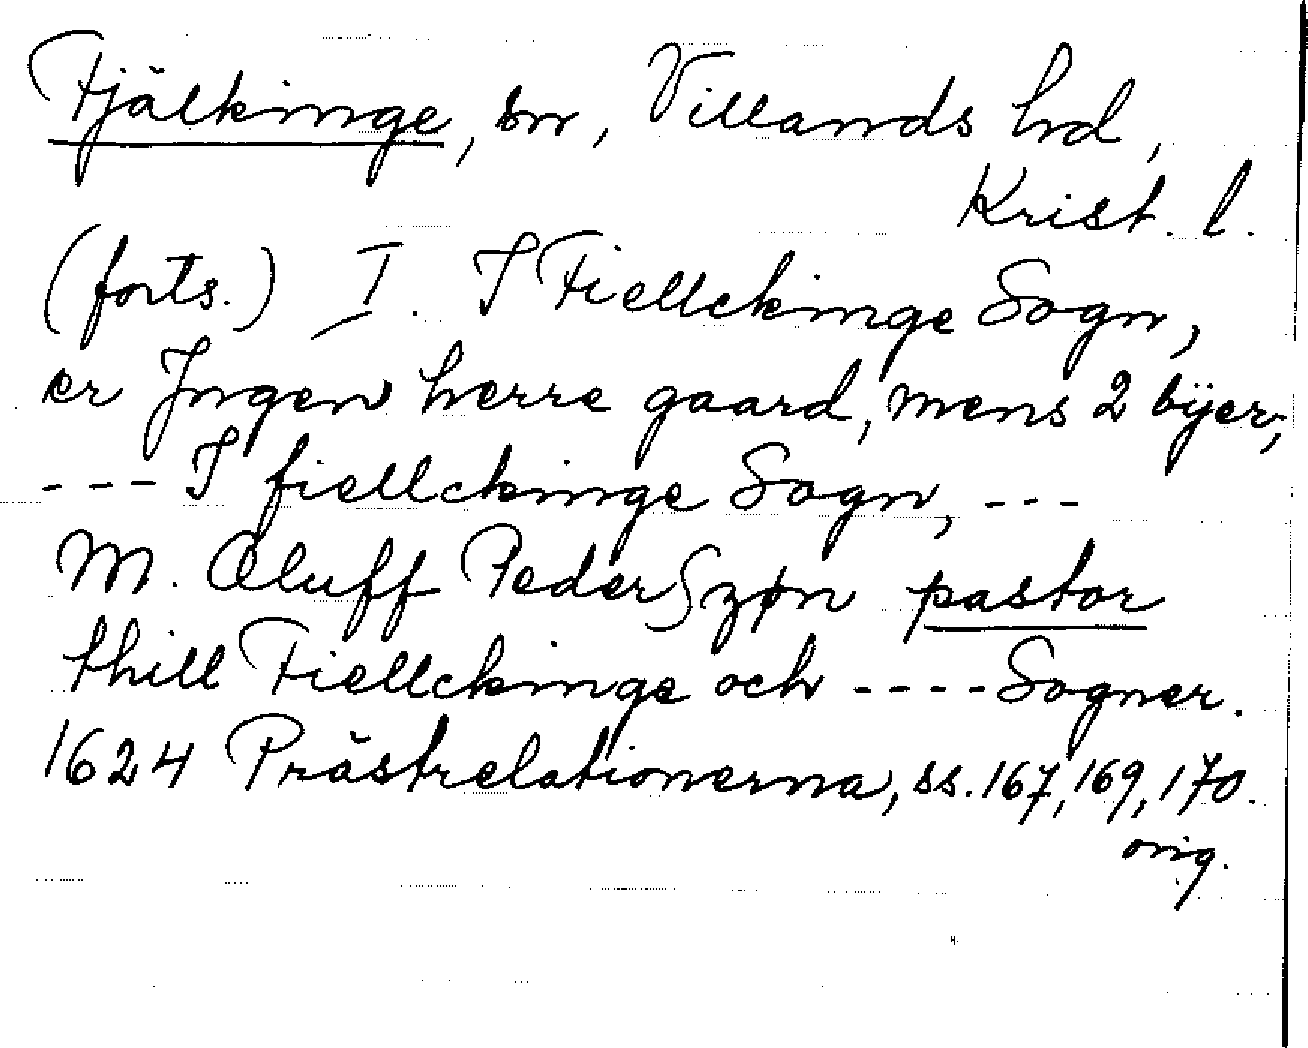 Fjälkinge, sn, Villands hd,
Krist. l.
(forts.) I. I Fiellckinge Sogn,
er Jngen herre gaard, mens 2 bÿer,
--- I fiellckinge Sogn, ---
M. Oluff Pederſzøn pastor
thill Fiellckinge och ---- Sogner.
1624 Prästrelationerna, ss. 167, 169, 170.
orig.